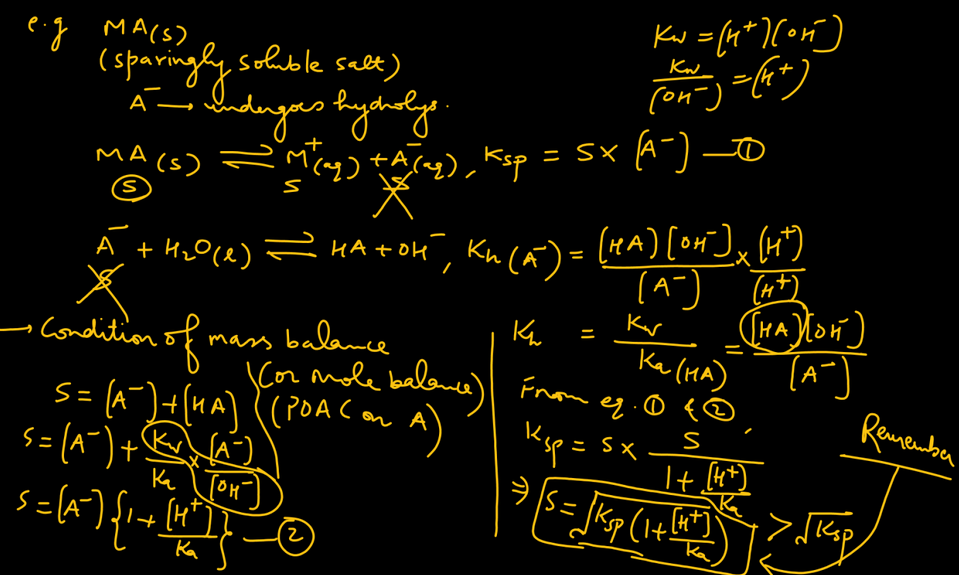 e.g MA(s)
(sparingly soluble salt)
A⁻ → undergoes hydrolys.
Kw = [H⁺][OH⁻]
Kw/[OH⁻] = [H⁺]
MA(s) ⇌ M⁺(aq) + A⁻(aq), Ksp = S × [A⁻] — ①
S S S
A⁻ + H₂O(l) ⇌ HA + OH⁻, Kh(A⁻) = [HA][OH⁻]/[A⁻] × [H⁺]/[H⁺]
S
→ Condition of mass balance
(or mole balance)
(POAC on A)
S = [A⁻] + [HA]
S = [A⁻] + Kw/Ka × [A⁻]/[OH⁻]
S = [A⁻] {1 + [H⁺]/Ka} — ②
Kh = Kw/Ka(HA) = [HA][OH⁻]/[A⁻]
From eq. ① & ②,
Ksp = S × S/(1 + [H⁺]/Ka)
⇒ S = √(Ksp(1 + [H⁺]/Ka)) > √Ksp
Remember